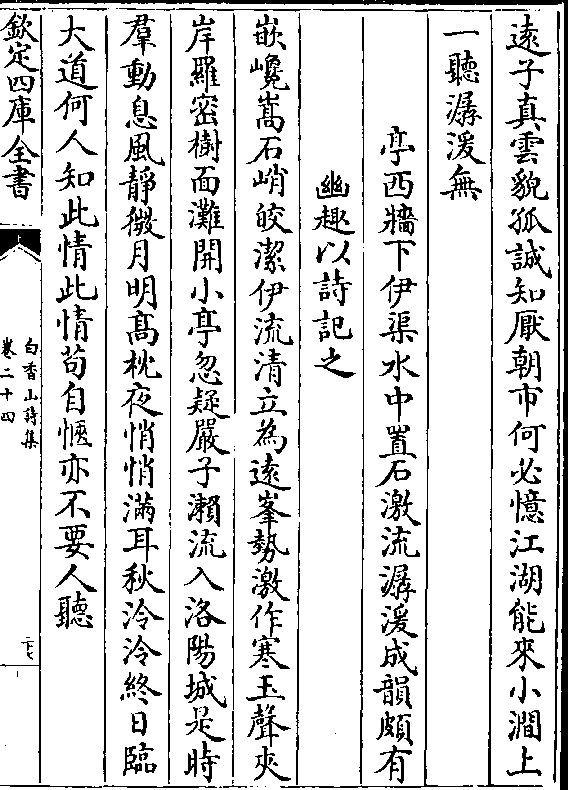 遠子真雲貌孤誠知厭朝市何必憶江湖能來小澗上
一聽潺湲無
亭西牆下伊渠水中置石激流潺湲成韻頗有
幽趣以詩記之
嵌巉嵩石峭皎潔伊流清立為遠峯勢激作寒玉聲夾
岸羅密樹面灘開小亭忽疑嚴子瀨流入洛陽城是時
羣動息風靜微月明髙枕夜悄悄滿耳秋泠泠終日臨
大道何人知此情此情茍自愜亦不要人聽
欽定四庫全書
白香山詩集
卷二十四